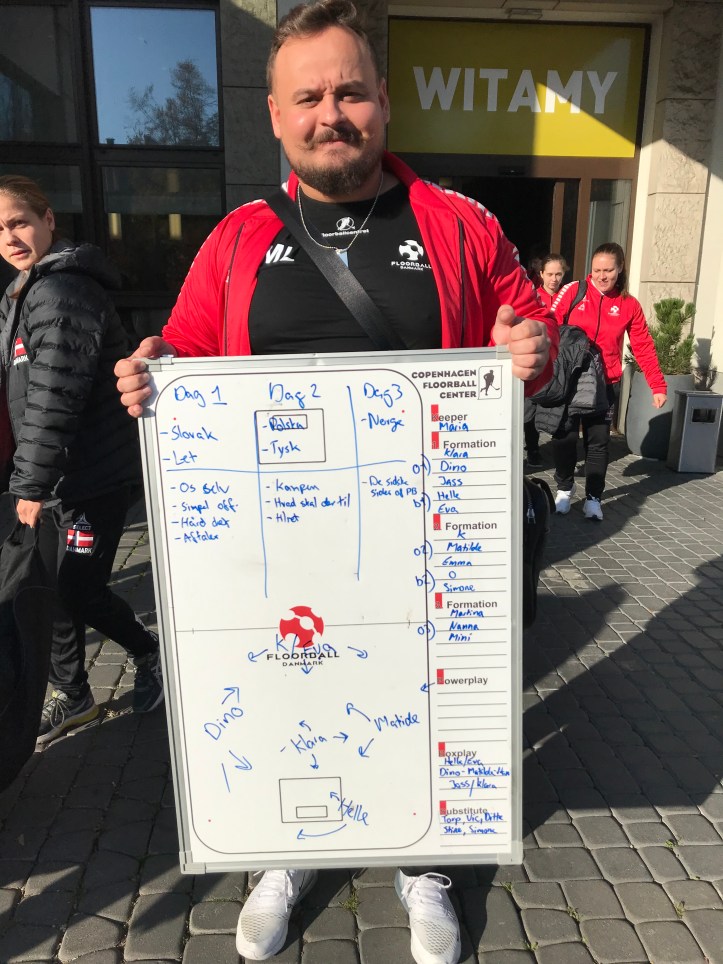 WITAMY
floorballcentral
ML
FLOORBALL
DANMARK
SELECT
DANMARK
COPENHAGEN
FLOORBALL
CENTER
Dag 1
Dag 2
Dag 3
- Slovak
- Let
- Polska
- Tysk
- Norge
- Os selv
- Simpel off.
- Hård def
- Aftaler
- Kampen
- Hvad skal der til
- De sidste
FLOORBALL
DANMARK
K/EVA
Dino
Klara
Matilde
Helle
eeper
Maria
Formation
Klara
o1) Dino
Jass
b1) Helle
Eva
Formation
K
o2) Matilde
Emma
b2) O
Simone
Formation
Martina
o3) Nanna
Mimi
owerplay
oxplay
Helle/Eva
Jass/Klara
ubstitute
Torp, Vic, Ditte
Stine, Simone